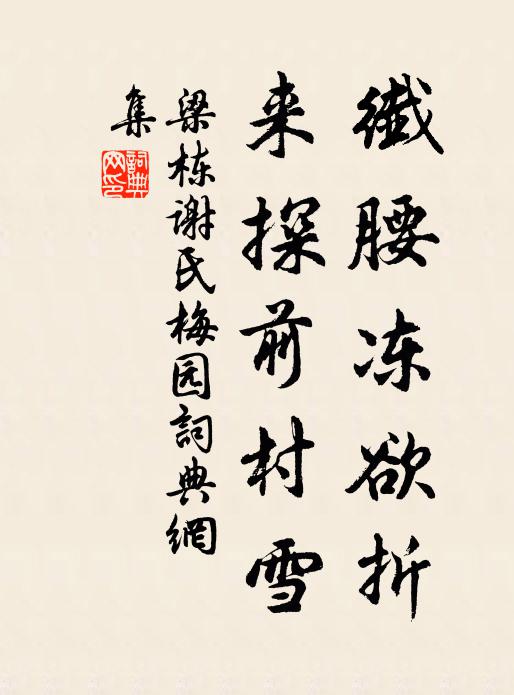 纖腰冻欲折
来探前村雪
梁栋谢氏梅园詞典網
集
詞典
网印